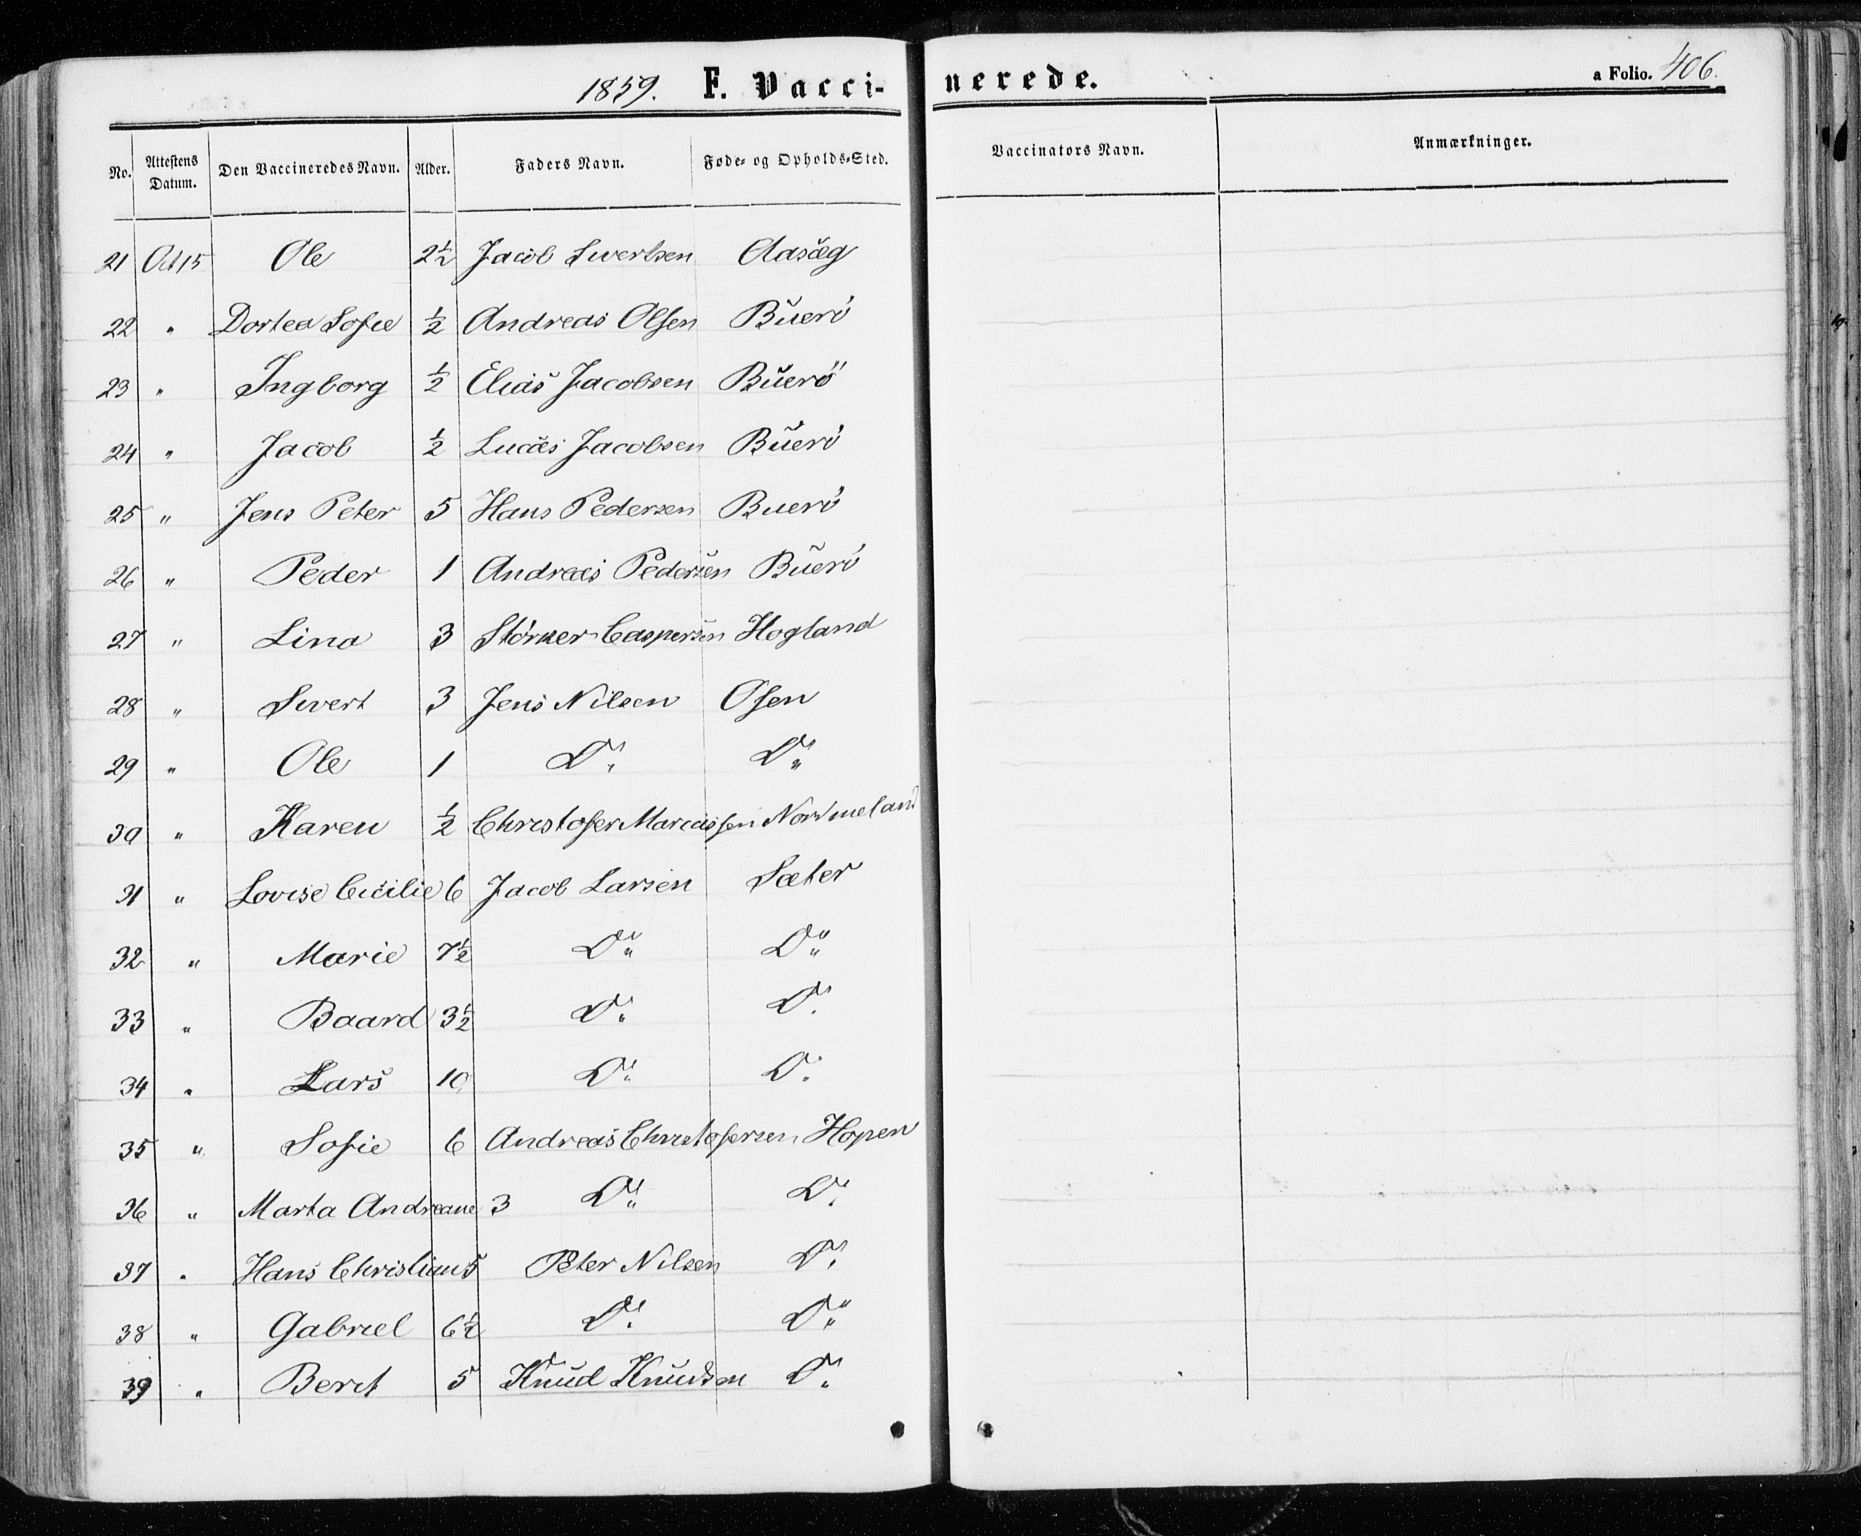 1859. F. Vacci-
nerede.
a Folio. 406.
No. Attestens Datum. Den Vaccineredes Navn. Alder. Faders Navn. Føde- og Opholds-Sted. Vaccinators Navn. Anmærkninger.
21 Oct 15 Ole 2½ Jacob Sivertsen Aasæg
22 " Dortea Sofie ½ Andreas Olsen Buerö
23 " Ingborg ½ Elias Jacobsen Buerö
24 " Jacob ½ Lucas Jacobsen Buerö
25 " Jens Peter 5 Hans Pedersen Buerö
26 " Peder 1 Andreas Pedersen Buerö
27 " Lina 3 Störker Caspersen Hogland
28 " Sivert 3 Jens Nilsen Osen
29 " Ole 1 Do. Do.
30 " Karen ½ Christofer Marcussen Nordmeland
31 " Lovise Cicilie 6 Jacob Larsen Sæter
32 " Marie 7½ Do. Do.
33 " Baard 3½ Do. Do.
34 " Lars 10 Do. Do.
35 " Sofie 6 Andreas Christofersen Hopen
36 " Marta Andreane 3 Do. Do.
37 " Hans Christian 5 Peter Nilsen Do.
38 " Gabriel 6½ Do. Do.
39 " Berit 5 Knud Knudsen Do.